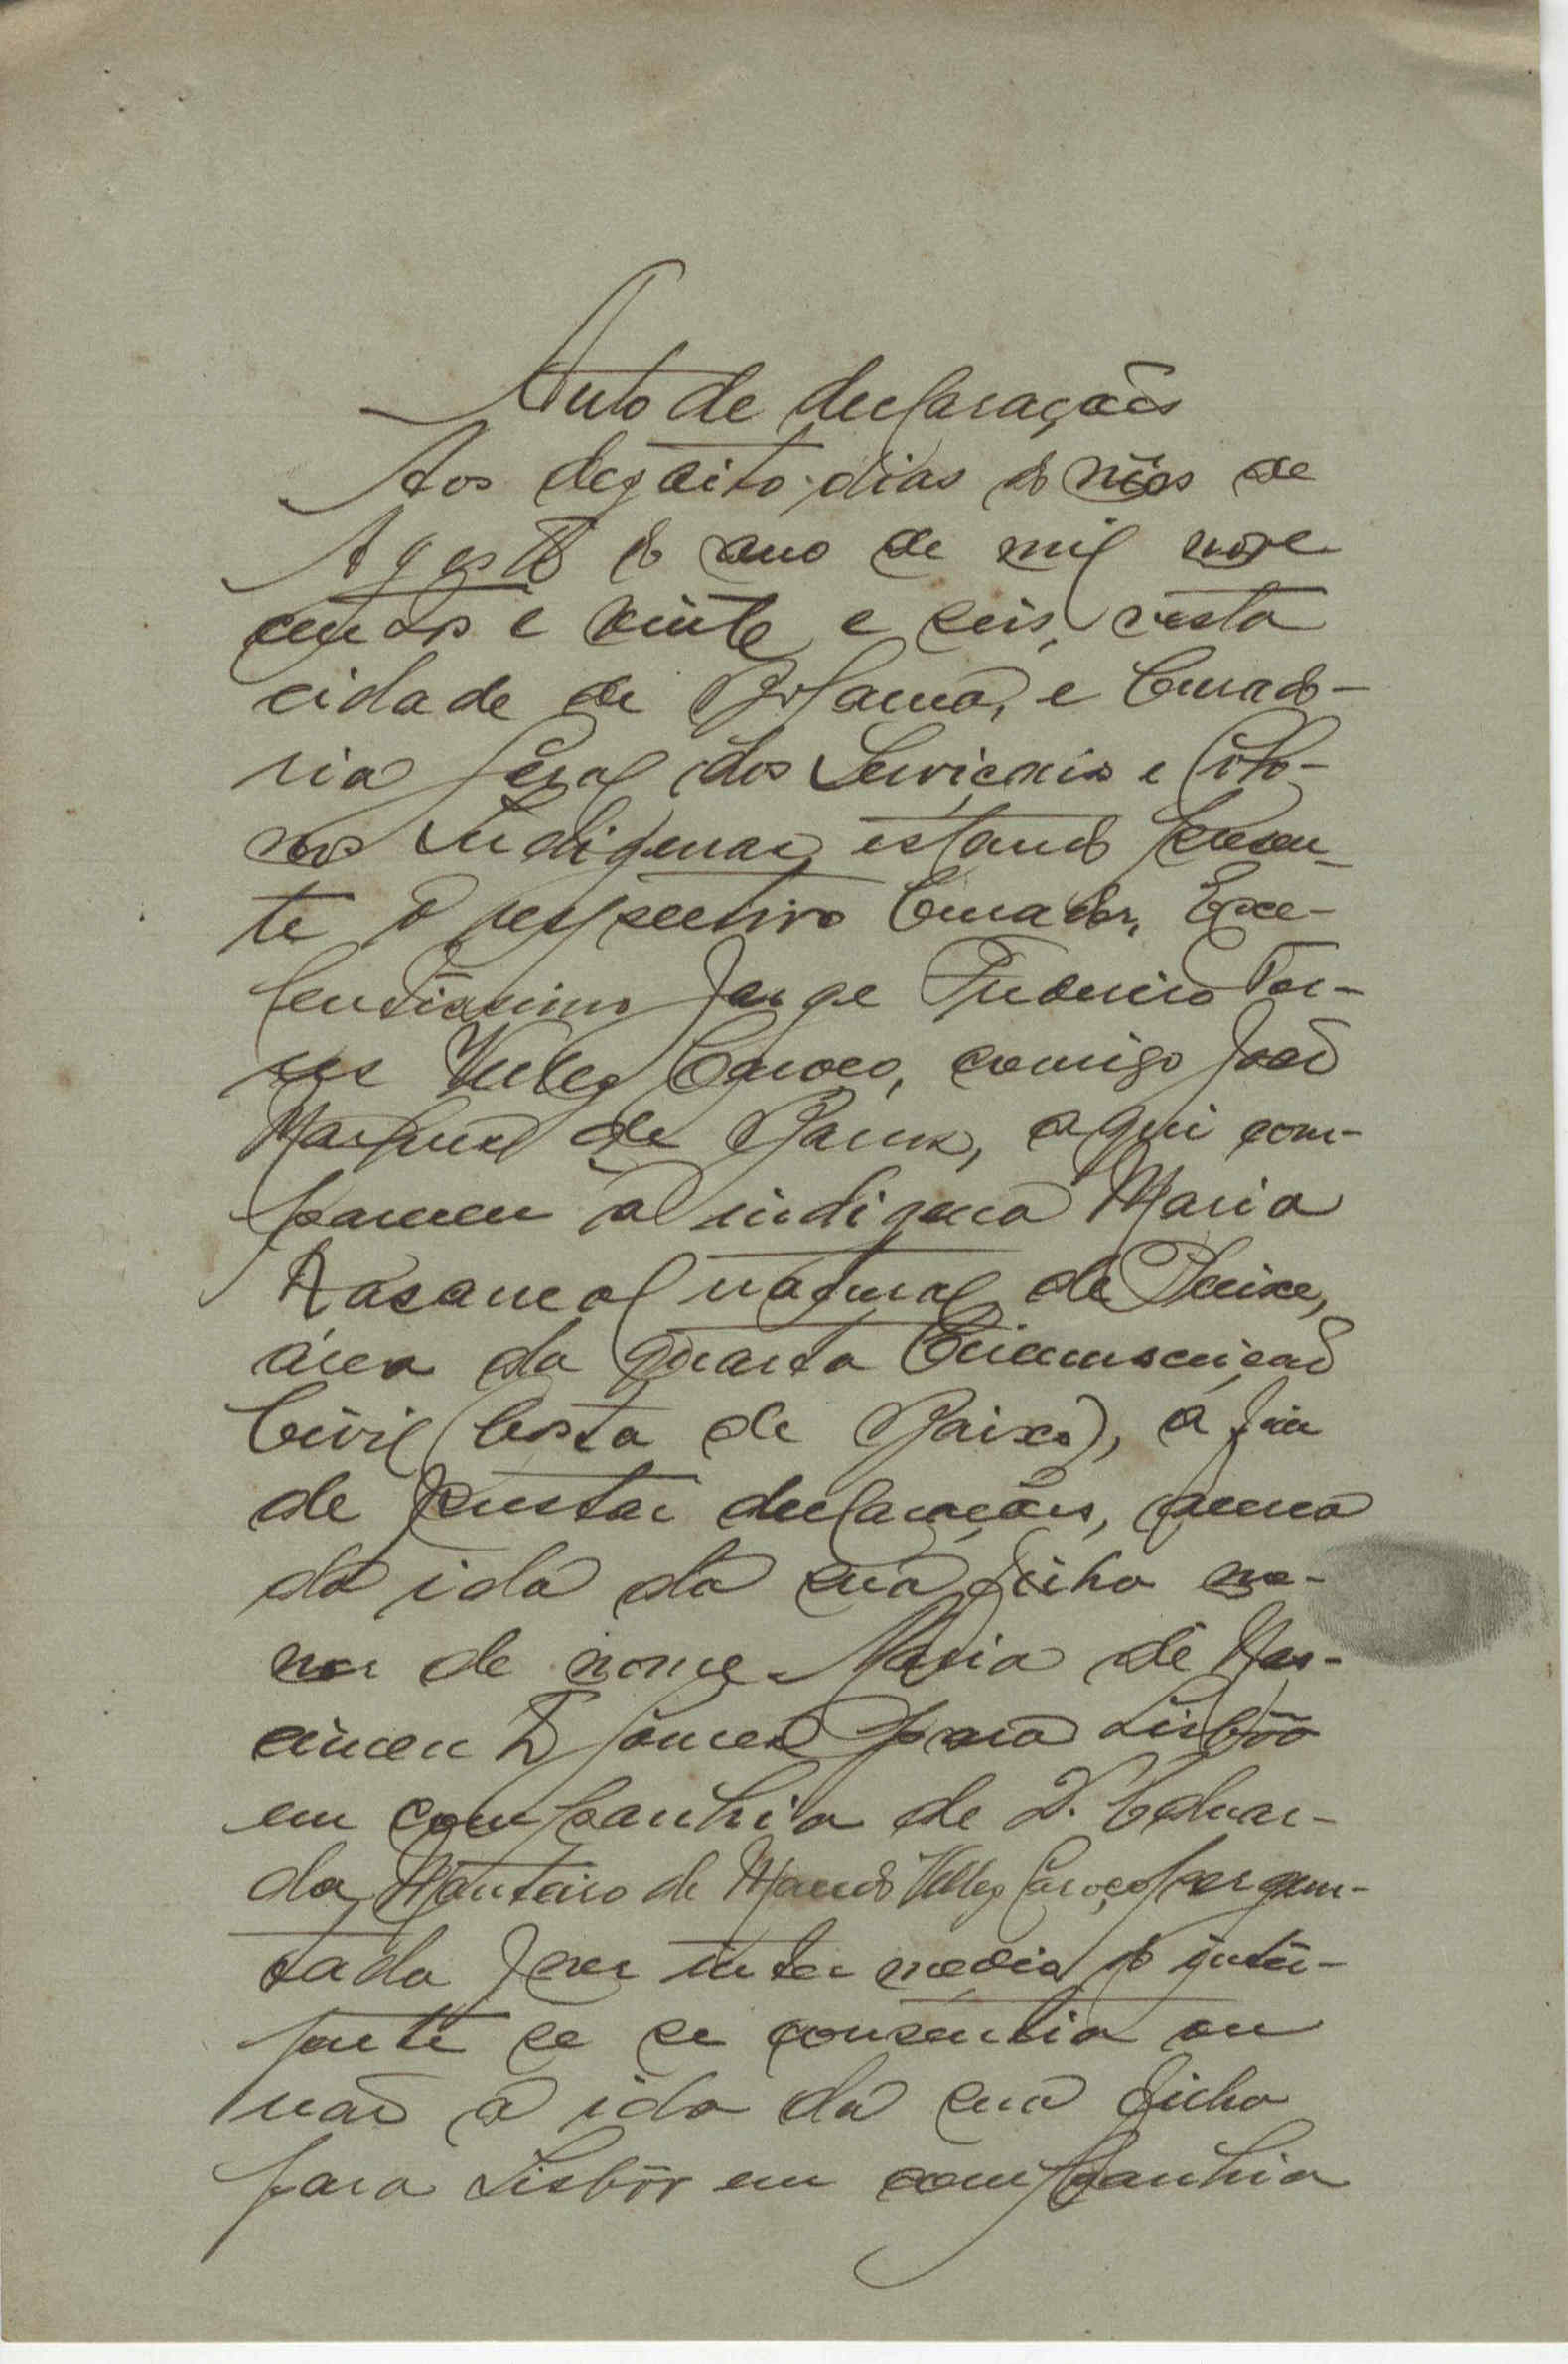 Auto de declarações
Aos dezoito dias do mês de
Agosto do ano de mil nove
centos e vinte e seis, nesta
cidade de Bolama, e Curado-
ria Geral dos Serviçais e Colo-
nos Indigenas, estando presen-
te o respectivo Curador, Exce-
lentissimo Jorge Frederico Tor-
res Vellez Caroço, comigo João
de Barros, aqui com-
pareceu a indigena Maria
natural de
área da quarta Circunscrição
Civil (Costa de Baixo), a fim
de prestar declarações, acerca
da ida da sua filha me-
nor de nome Maria de Nas-
cimento Gomes para Lisbôa
em companhia de D. Eduar-
da Monteiro de Macedo Vellez Caroço pergun-
tada por intermedio do intér-
prete se se consentia ou
não a ida da sua filha
para Lisbôa em companhia